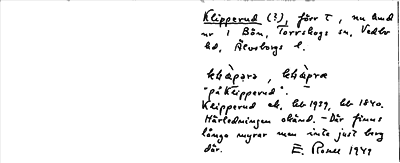 Klipperud (?), förr t, nu lund
nr 1 Bön, Torrskogs sn, Vedbo
hd, Älvsborgs l.
khäpərə, khäpra
"på Klipperud".
Klipperud ek. kb 1939, kb 1840.
Härledningen okänd. – Där finns
långa myrar men inte just berg
där. E. Rosell 1949